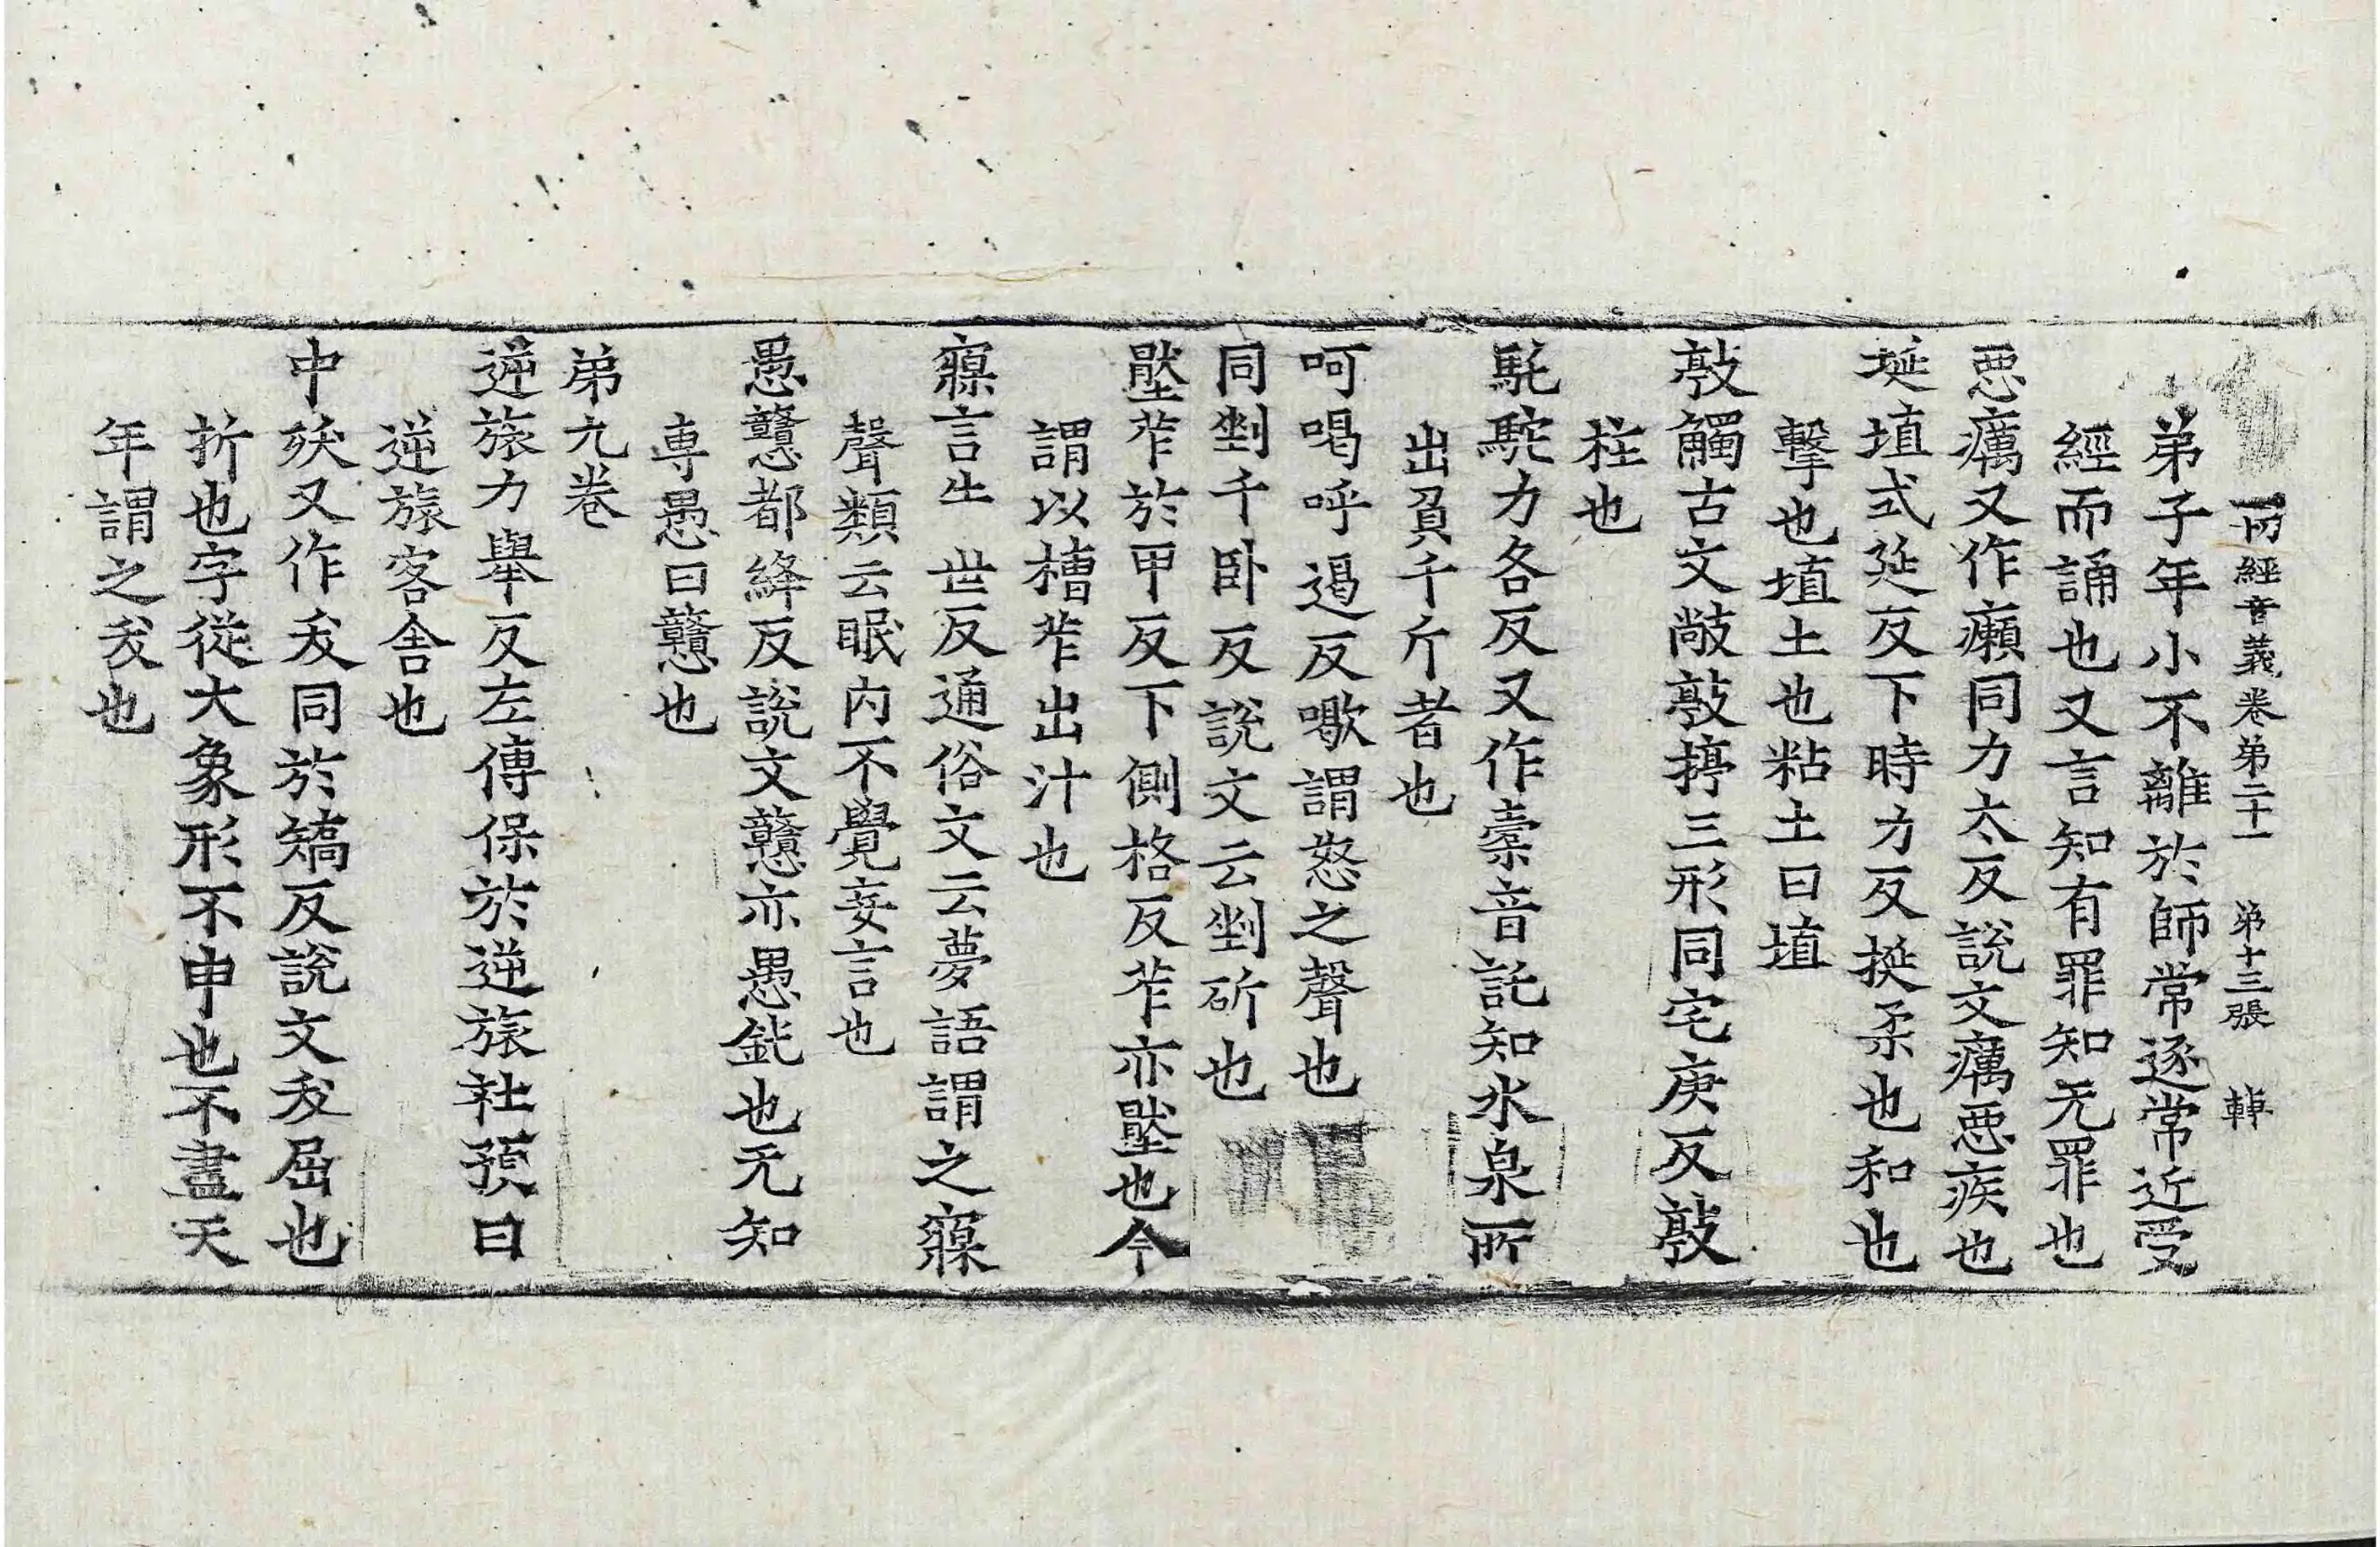 一切經音義卷第二十一 第十三張 䡴
弟子年小不離於師常逐常近受
經而誦也又言知有罪知无罪也
惡癘又作癩同力太反說文癘惡疾也
埏埴式延反下時力反挻柔也和也
擊也埴土也粘土曰埴
敲觸古文敞敲揨三形同宅庚反敲
柱也
駝力各反又作橐音託知水泉所
出負千斤者也
呵喝呼遏反嗽謂怒之聲也
同剉千卧反說文云剉斫也
壓笮於甲反下側格反笮亦壓也今
謂以槽笮出汁也
寱言牛世反通俗文云夢語謂之寱
聲類云眠內不覺妄言也
愚戇都絳反說文戇亦愚鈍也无知
専愚曰戇也
弟九卷
逆旅力舉反左傳保於逆旅社預曰
逆旅客舍也
中殀又作夭同於矯反說文夭屈也
折也字從大象形不申也不盡天
年謂之夭也